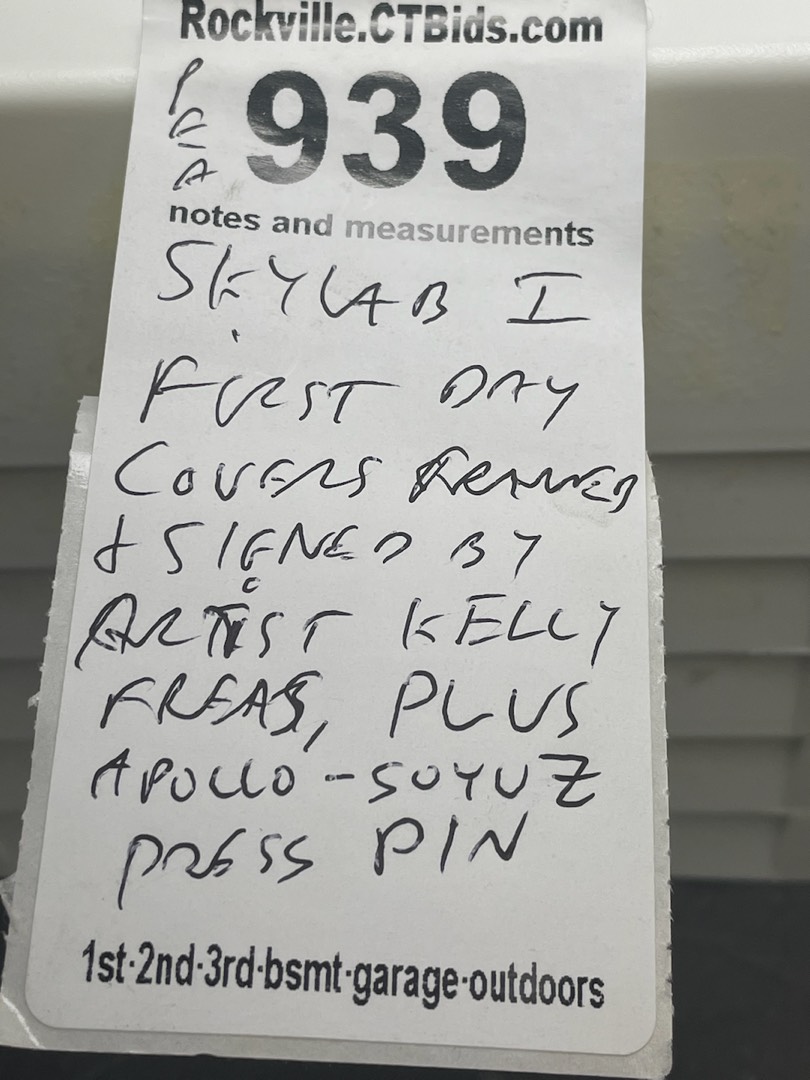 Rockville.CTBids.com
PEA
939
notes and measurements
SKYLAB I
FIRST DAY
COVERS FRAMED
& SIGNED BY
ARTIST KELLY
FREAS, PLUS
APOLLO-SOYUZ
PRESS PIN
1st·2nd·3rd·bsmt·garage·outdoors